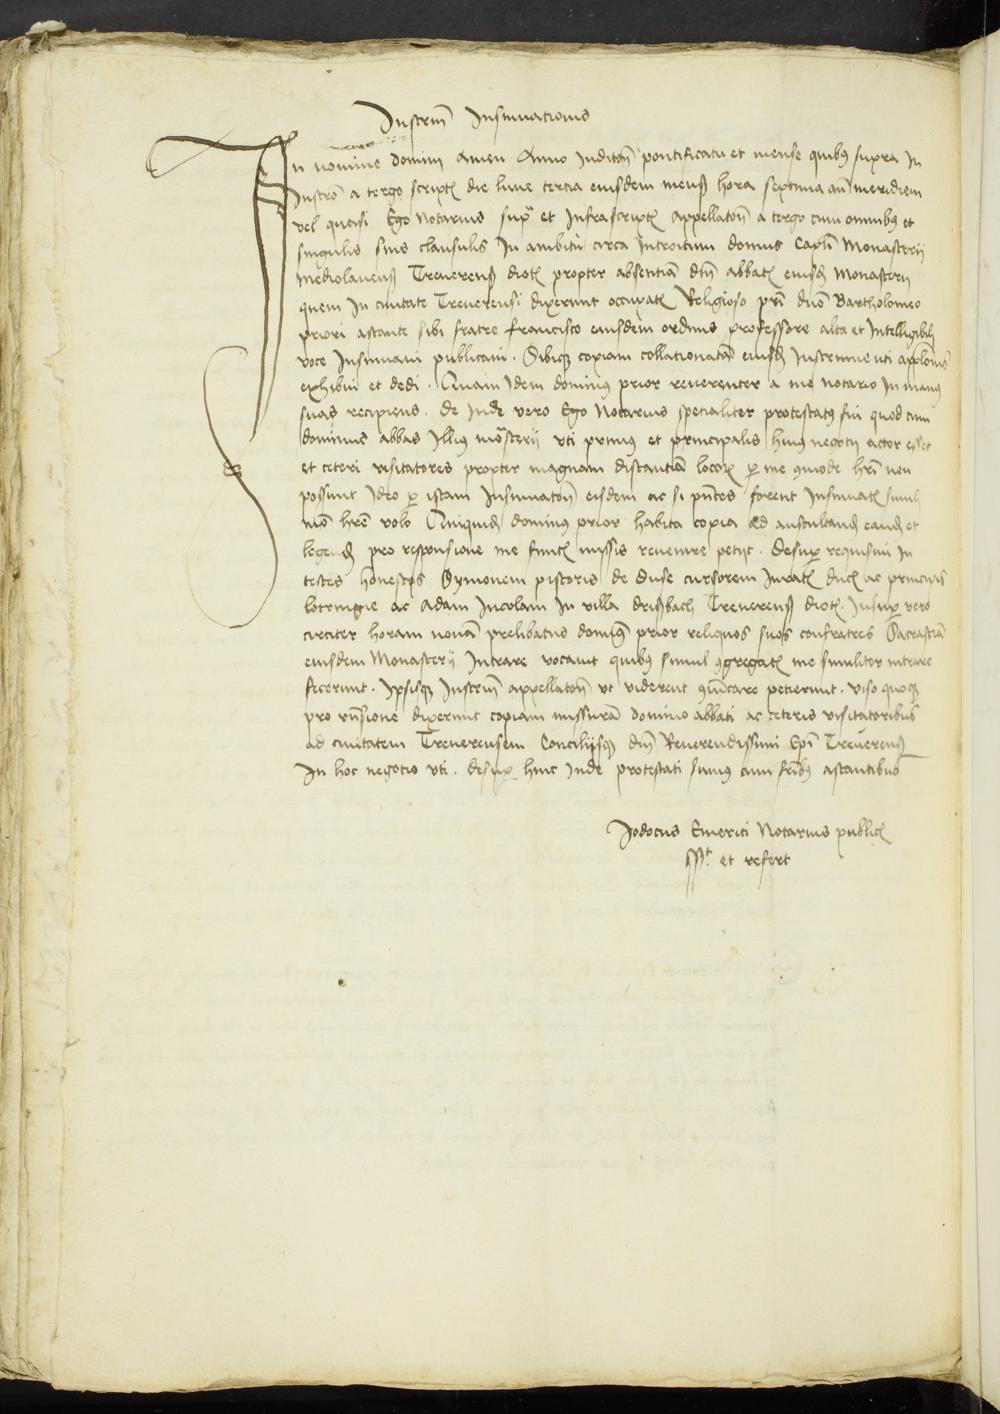 Instrm̄ Insinuationis
In nomine domini amen Anno Inditoñ pontificatu et mense quibꝯ supra In
Instro a tergo script die lune tercia eiusdem mensꝭ hora septima an̄ meridiem
vel quasi Ego Notarius supᵃ et Infrascript appellatoñ a tergo cum omnibꝯ et
singulis suis clausulis In ambitu circa Introitum domus Capli Monasterij
Mediolanensꝭ Treverensꝭ dioc propter absentiā dn̄i abbatꝭ eiusdꝫ Monasterij
quem In ciuitate Treverensi dixerunt occupatꝭ Religioso pri dn̄o Bartholomeo
priori astante sibi fratre francisco eiusdem ordinis professore alta et Intelligibili
voce Insinuaui publicaui . Sibiqꝫ copiam collationatā eiusdꝫ Instrumenti applonis
exhibui et dedi . Quam Idem dominꝯ prior reuerenter a me notario In manꝯ
suas recipiens . de Inde vero Ego Notarius specialiter protestatꝯ fui quod cum
dominus abbas Illius mōsterij vti primus et principalis huiꝯ negotij actor esset
et ceteri visitatores propter magnam distantiā locoꝝ ꝑ me ꝯmode hr̄i non
possunt Ideo ꝑ istam Insinuatoñ eisdem ac si pn̄tes forent Insinuatꝭ simili
mō hr̄e volo Quiquidꝫ dominꝯ prior habita copia ad auscultandꝫ eandꝫ et
legendꝫ pro responsione me finitꝭ missis reuenire petijt . desuꝑ requisiui In
testes honestos Symonem pistoris de Duse cursorem Iuratꝭ ducꝭ ac principis
lotringie ac Adam Incolam In villa drisbach Treverensꝭ dioc . Insuꝑ vero
circiter horam nonā prelibatus dominꝯ prior reliquos suos confratres Sacrastiā
eiusdem Monasterij Intrare vocauit quibꝯ simul ꝯgregatꝭ me similiter intrare
fecerunt . Ipsisqꝫ Instrm̄ appellatoñ vt viderent ꝯmꝛ̄care petierunt . viso quoqꝫ
pro rn̄sione dixerunt copiam missurā domino abbati ac ceteris visitatoribus
ad ciuitatem Treverensem Concilijsqꝫ dn̄i Reuerendissimi Epi Treverensꝭ
In hoc negotio vti . desuꝑ hinc Inde protestati sumꝯ cum fribꝯ astantibus
Jodocus Emerici Notarius publicꝭ
sspᵗ et refert